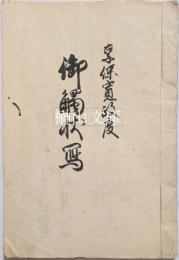 享保寛政度
御觸状写